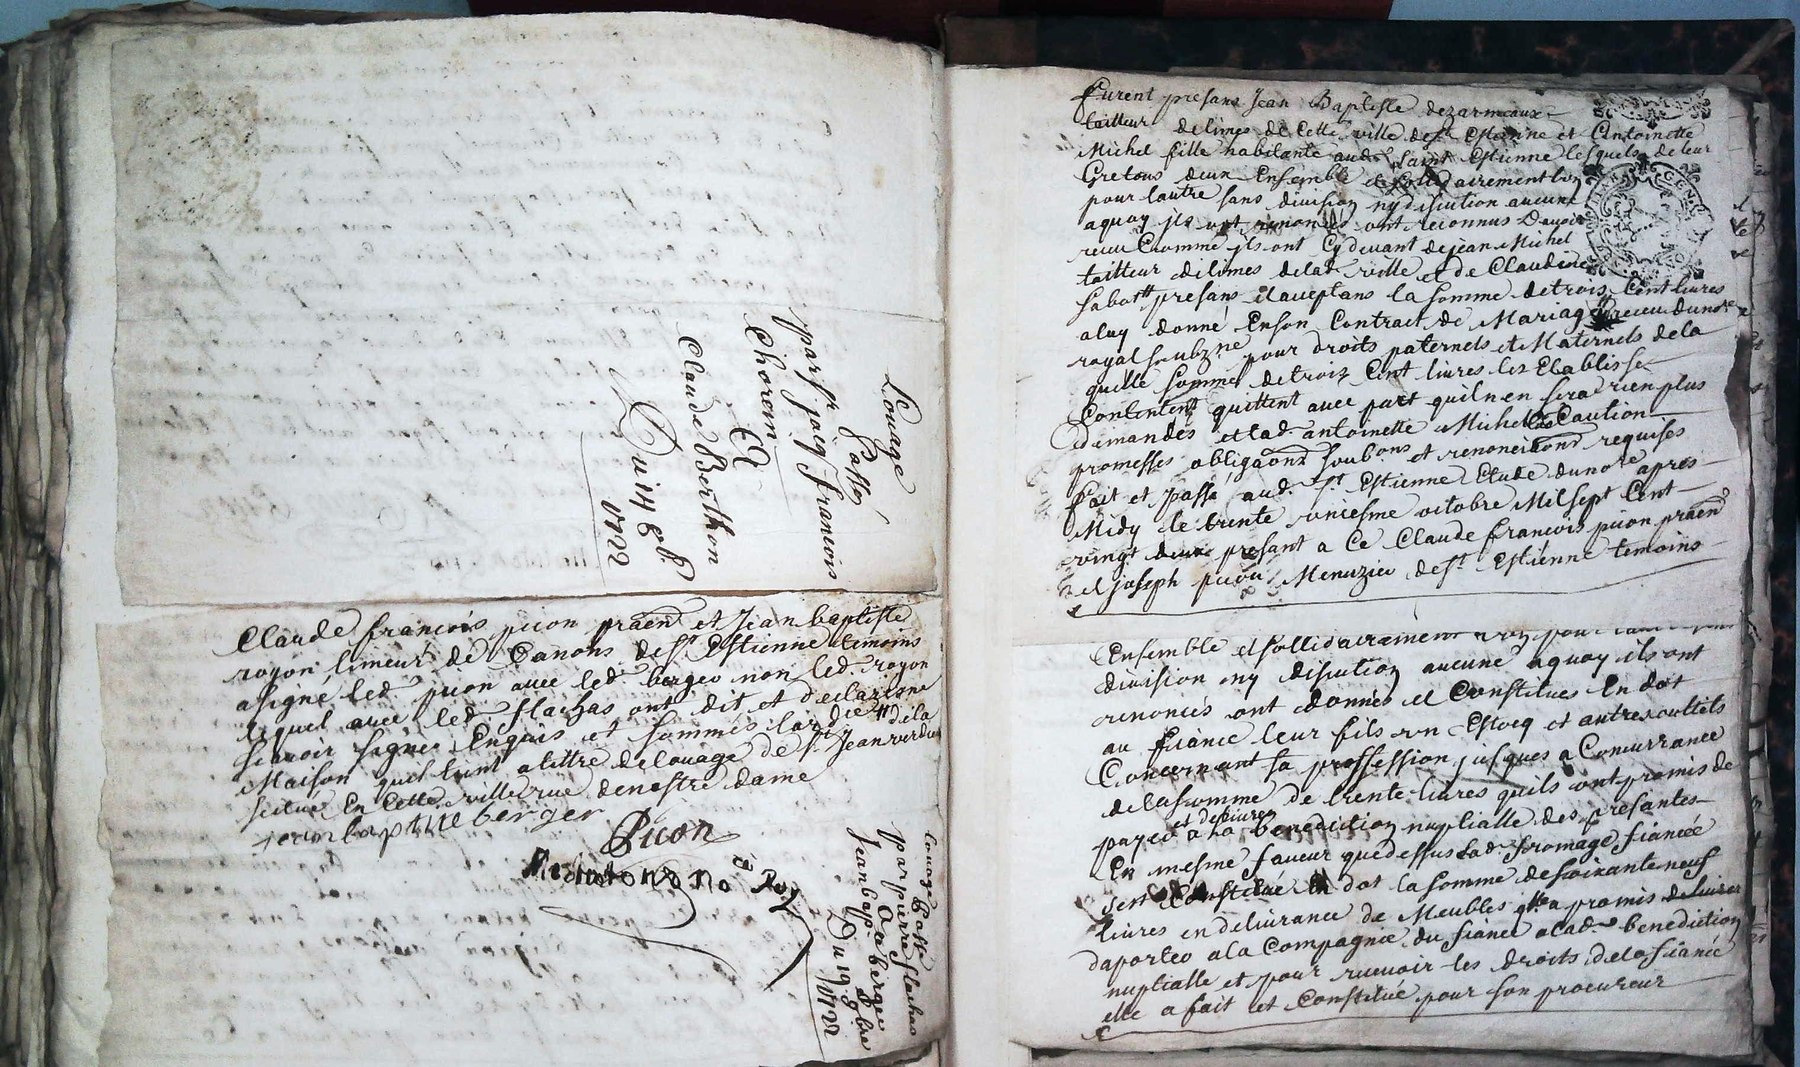 Louage
Passé
par sr jacq françois
Chorein
Et
Claude Berthon
Du 14 8b.
1722
Claude françois puon praēn et Jean baptiste
royon limeur de Canons de st Estienne temoins
a signé led puon avec led berger non led royon
lequel avec led flachas ont dit et declaré ne
scavoir signer Enquis et sommés lard
Maison quil tient a tittre de louage de sr Jean verdier
scitue En Cette ville rue de nostre dame
jean baptiste berger
Puon
no Roy
Louage Passé
par pierre flachas
A
Jean bapt. berger
Du 19 8bre
1722
furent presans Jean Baptiste dezarmeaux
tailleur de limes de Cette ville de st Estienne et Antoinette
Michel fille habitante aud Saint Estienne lesquels de leur
Gre tous deux Ensemble et sollidairement lun
pour lautre sans division ny discution aucune
a quoy jls ont renoncés ont reconnus Davoir
receu Comme jls ont Cy devant de jean Michel
tailleur de limes de lad ville et de Claudine
Sabott presans et aceptans la somme de trois Cent livres
a luy donné En son Contract de Mariage receu du nore
royal soubzne pour droits paternels et Maternels de la
quelle somme de trois Cent livres les Etablis se
Contentent quittent avec pact quil n en sera rien plus
demandés et lad antoinette Michel Caution
promesses obligaons soubons et renonciaons requises
fait et passé aud. st Estienne Etude du nore apres
Midy le trente uniesme octobre Mil sept Cent
vingt deux presant a Ce Claude francois puon praēn
et joseph puon Menuzier de st Estienne temoins
Ensemble et sollidairement
division ny discution aucune a quoy ils ont
renoncés ont donnés et Constitués En dot
au fiancé leur fils un Estocq et autres outtils
Concernant sa proffession jusques a Concurrance
de la somme de trente livres quils ont promis de
et delivrer
payer a la benediction nuptialle des presantes
En mesme faveur que dessus lad fromage fiancée
sest Constitué En dot la somme de soixante neuf
livres en delivrance de Meubles qlle a promis delivrer
daporter a la Compagnie du fiance a lad benediction
nuptialle et pour recevoir les droits de la fiancée
elle a fait et Constitué pour son procureur